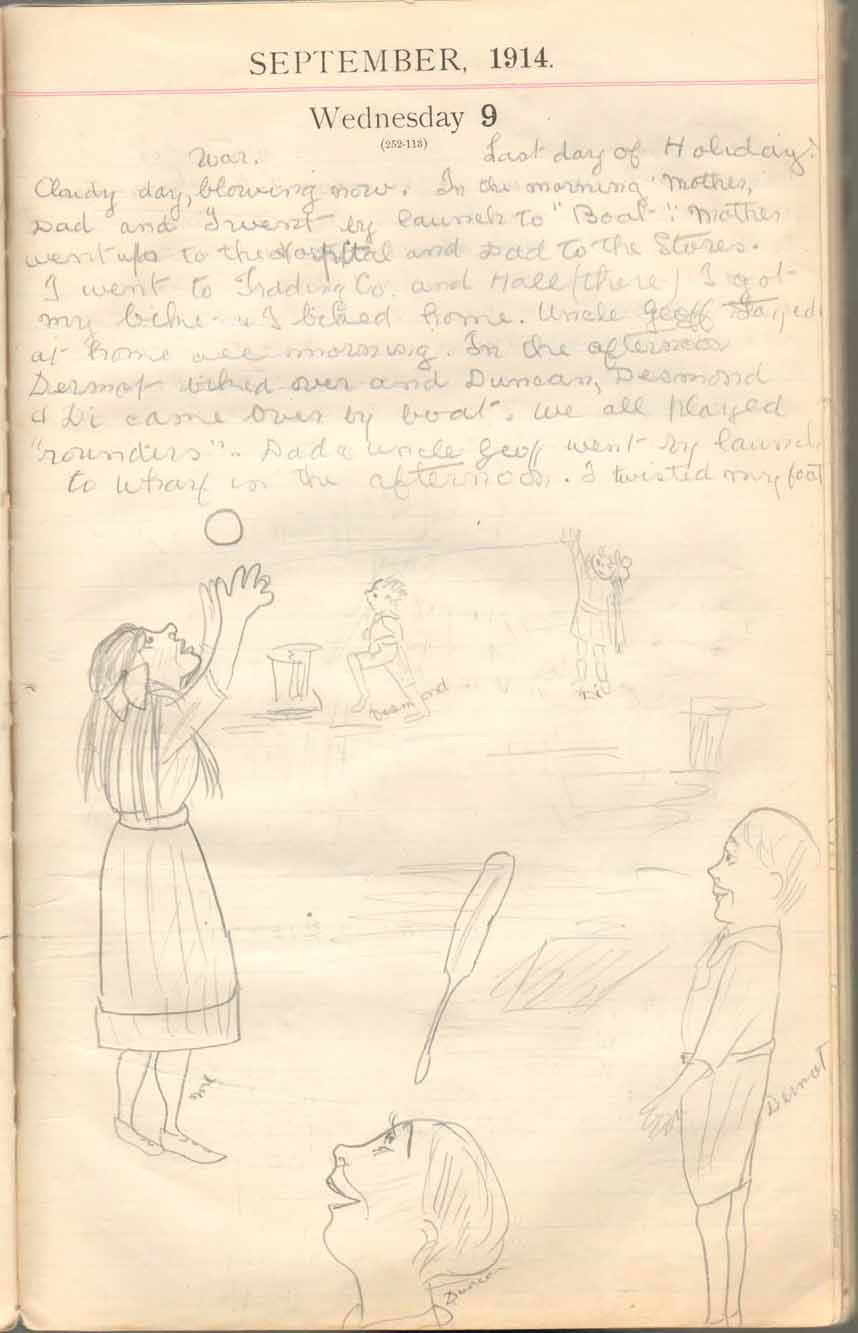 SEPTEMBER, 1914.
Wednesday 9
(252-113)
War. Last day of Holiday.
Cloudy day, blowing now. In the morning Mother,
Dad and I went by launch to "Boat". Mother
went up to the Hospital and Dad to the Stores.
I went to Trading Co. and Hall (there) I got
my bike & I biked home. Uncle Geoff stayed
at home all morning. In the afternoon
Dermot biked over and Duncan, Desmond
& Di came over by boat. We all played
"rounders". Dad & Uncle Geoff went by launch
to wharf in the afternoon. I twisted my foot
Desmond
Di
me
Dermot
Duncan